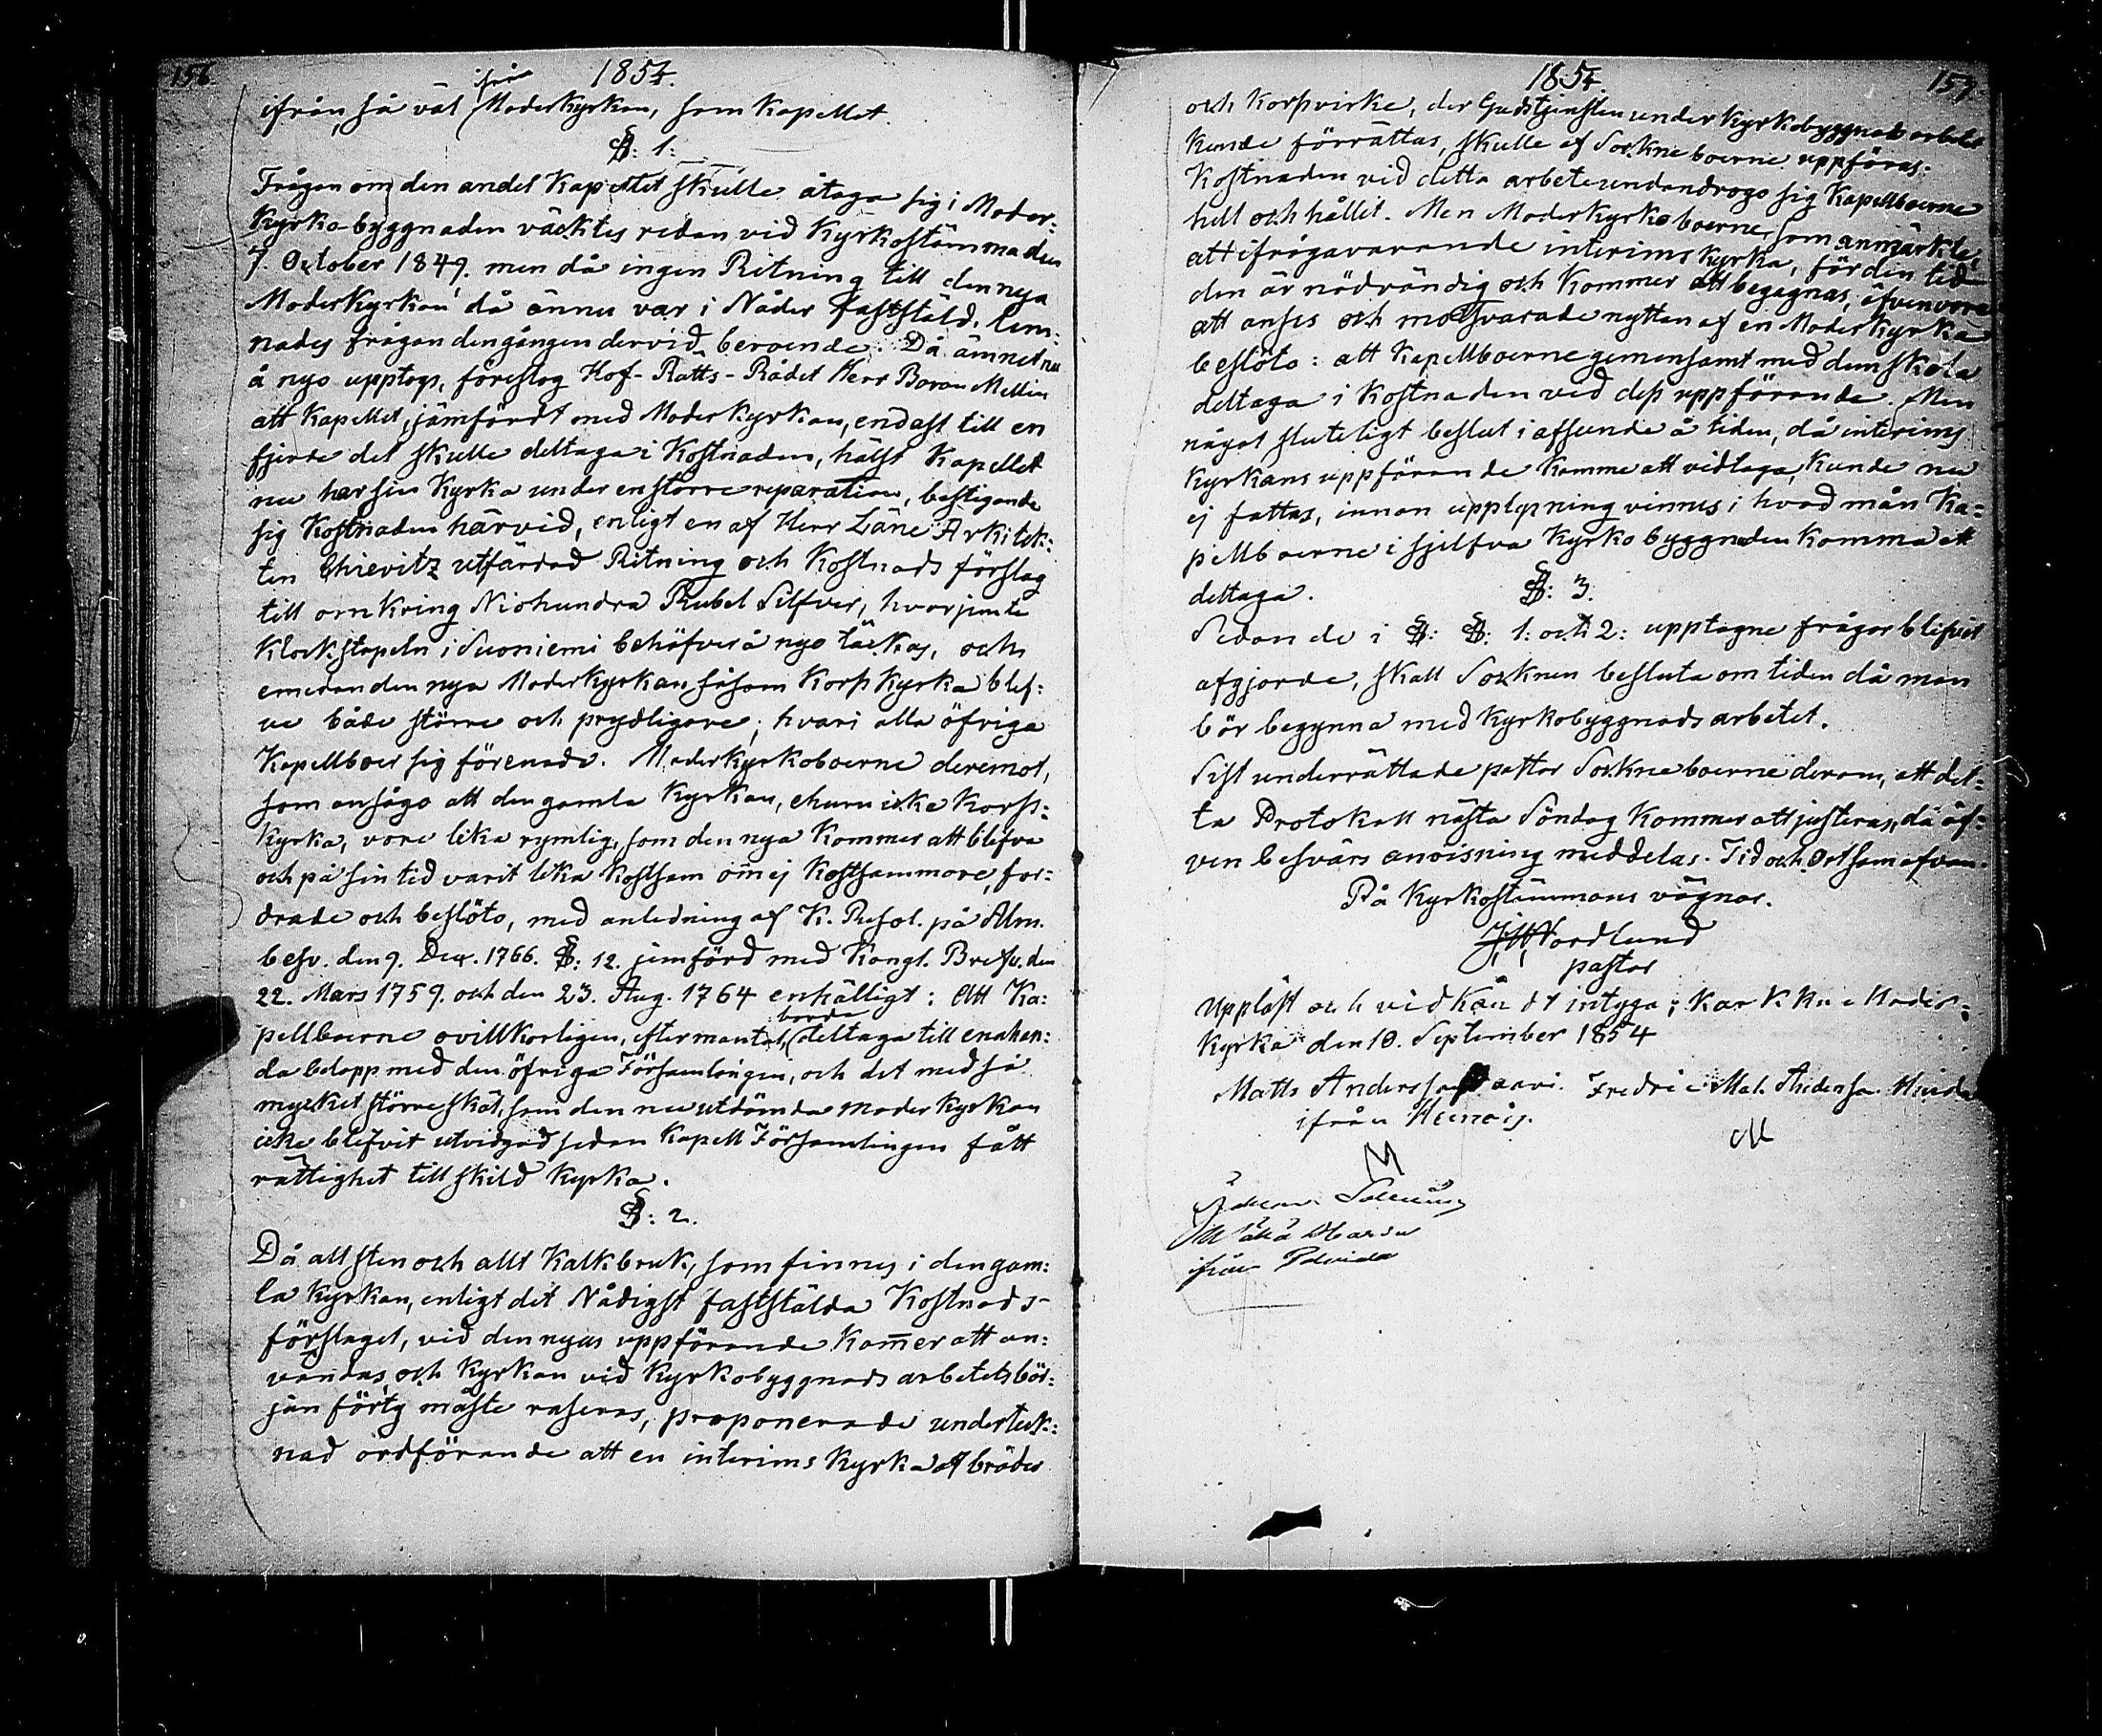 156.
1854.
ifrån, så väl ifrån Moderkyrkan, som Kapellet.
§: 1:
Frågan om den andel Kapellet skulle åtaga sig i Moder-
Kyrko-byggnaden väcktes redan vid Kyrkostämma den
7. October 1849. men då ingen Ritning till den nya
Moderkyrkan då ännu var i Nåder fastställd, lem:
nades frågan dengången dervid beroende. Då ämnet nu
å nyo upptogs, föreslog Hof-Rätts-Rådet Herr Baron Mellin
att Kapellet, jämfördt med Moderkyrkan, endast till en
fjerde del skulle deltaga i Kostnaden, hälst Kapellet
nu har sin Kyrka under en större reparation, bestigande
sig Kostnaden härvid, enligt en af Herr Läne-Arkitek:
ten Chievitz utfärdad Ritning och Kostnads förslag
till omkring Niohundra Rubel Silfver, hvarjemte
Klockstapeln i Suoniemi behöfver å nyo täckas, och
emedan den nya Moderkyrkan såsom Korskyrka blef:
ve både större och prydligare; hvari alla öfriga
Kapellboer sig förenade. Moderkyrkoboerne deremot,
som ansågo att den gamla Kyrkan, ehuru icke Kors-
Kyrka, vore lika rymlig, som den nya Kommer att blifva
och på sin tid varit lika Kostsam om ej Kostsammare, for:
drade och beslöto, med anledning af K. Resol. på Alm.
besv. den 9. Dec. 1766. §: 12. jemförd med Kongl. Brefv. den
22. Mars 1759. och den 23. Aug. 1764 enhälligt: Att Ka:
pellboerne ovillkorligen, efter mantal, borde deltaga till enahan:
da belopp med den öfriga Församlingen, och det med så
mycket större skäl, som den nu utdömda moderkyrkan
icke blifvit utvidgad sedan Kapell Församlingen fått
rättighet till skild Kyrka.
§: 2.
Då all sten och allt Kalkbruk, som finnes i den gam:
la Kyrkan, enligt det Nådigst fastställda Kostnads-
förslaget, vid den nyas uppförande Kommer att an:
vändas, och Kyrkan vid Kyrkobyggnads arbetets bör:
jan förty måste raseras, proponerade underteck:
nad ordförande att en interims Kyrka af bräder
1854.
157.
och Korsvirke, der Gudstjensten under Kyrkobyggnads arbetet
Kunde förrättas, skulle af Sockneboerne uppföras.
Kostnaden vid detta arbete undandrogo sig Kapellboerne
helt och hållet. Men Moderkyrkoboerne, som anmärkte,
att ifrågavarande interimskyrka, för den tid
den är nödvändig och Kommer att begagnas, äfven vore
att anses och motsvarade nyttan af en Moderkyrka
beslöto: att Kapellboerne gemensamt med dem skola
deltaga i Kostnaden ved dess uppförande. Men
något sluteligt beslut i afseende å tiden, då interims
Kyrkans uppförande Komme att vidtaga, Kunde nu
ej fattas, innan upplysning vinnes i hvad mån Ka:
pellboerne i sjelfva Kyrkobyggnaden Komma att
deltaga.
§: 3.
Sedan de i §: §: 1: och 2: upptagne frågor blifvit
afgjorde, skall Socknen besluta om tiden då man
bör begynna med Kyrkobyggnads arbetet.
Sist underrättade pastor Sockneboerne derom, att det:
ta Protokoll nästa Söndag Kommer att justeras, då äf:
ven besvärs anvisning meddelas. Tid och Ort som ofvan.
På Kyrkostämmans vägnar.
Nordlund
pastor
Uppläst och vidkändt intyga; Karkku Moder-
Kyrka den 10. September 1854
Matts Andersson Fredric Mat. Andersson
ifrån
M
ifrån